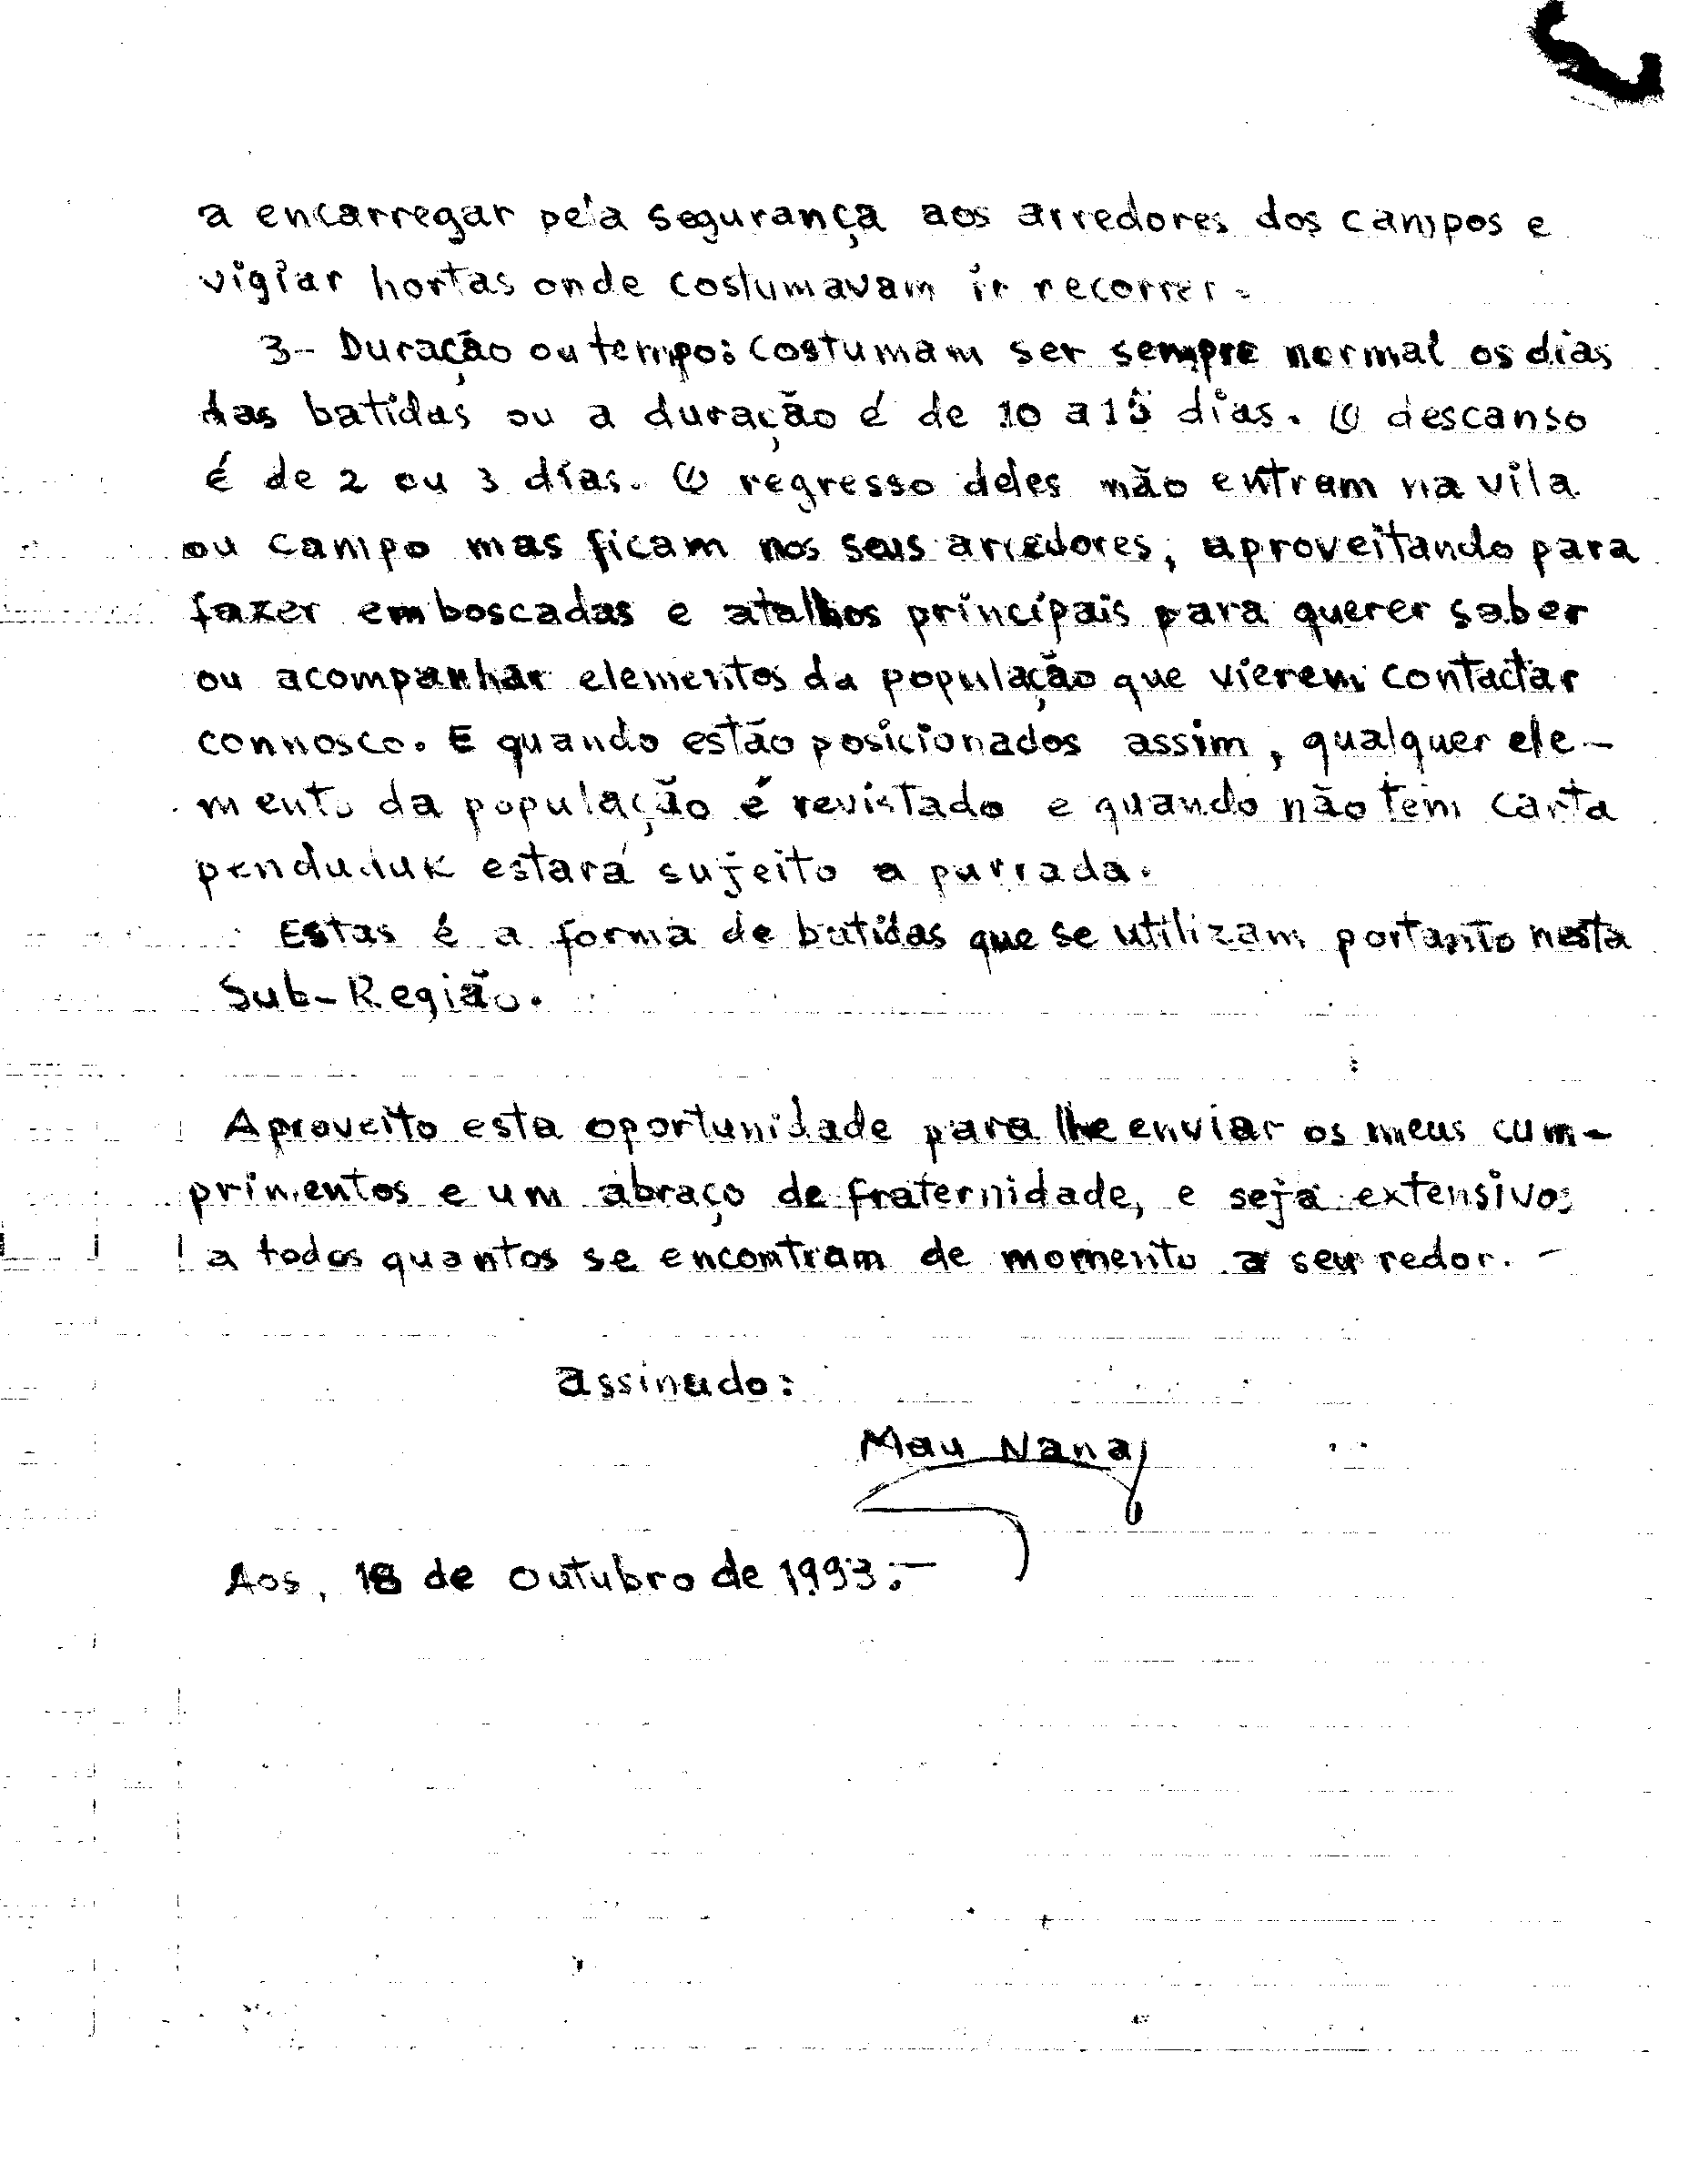 a encarregar pela segurança aos arredores dos campos e
vigiar hortas onde costumavam ir recorrer.
3- Duração ou tempo: Costumam ser sempre normal os dias
das batidas ou a duração é de 10 a 15 dias. O descanso
é de 2 ou 3 dias. O regresso deles não entram na vila
ou campo mas ficam nos seus arredores, aproveitando para
fazer emboscadas e atalhos principais para querer saber
ou acompanhar elementos da população que vierem contactar
connosco. E quando estão posicionados assim, qualquer ele-
mento da população é revistado e quando não tem carta
penduduk estará sujeito a purrada.
Estas é a forma de batidas que se utilizam portanto nesta
Sub-Região.
Aproveito esta oportunidade para lhe enviar os meus cum-
primentos e um abraço de fraternidade, e seja extensivo
a todos quantos se encontram de momento a seu redor. -
assinado:
Mau Nana
Aos, 18 de Outubro de 1993.-